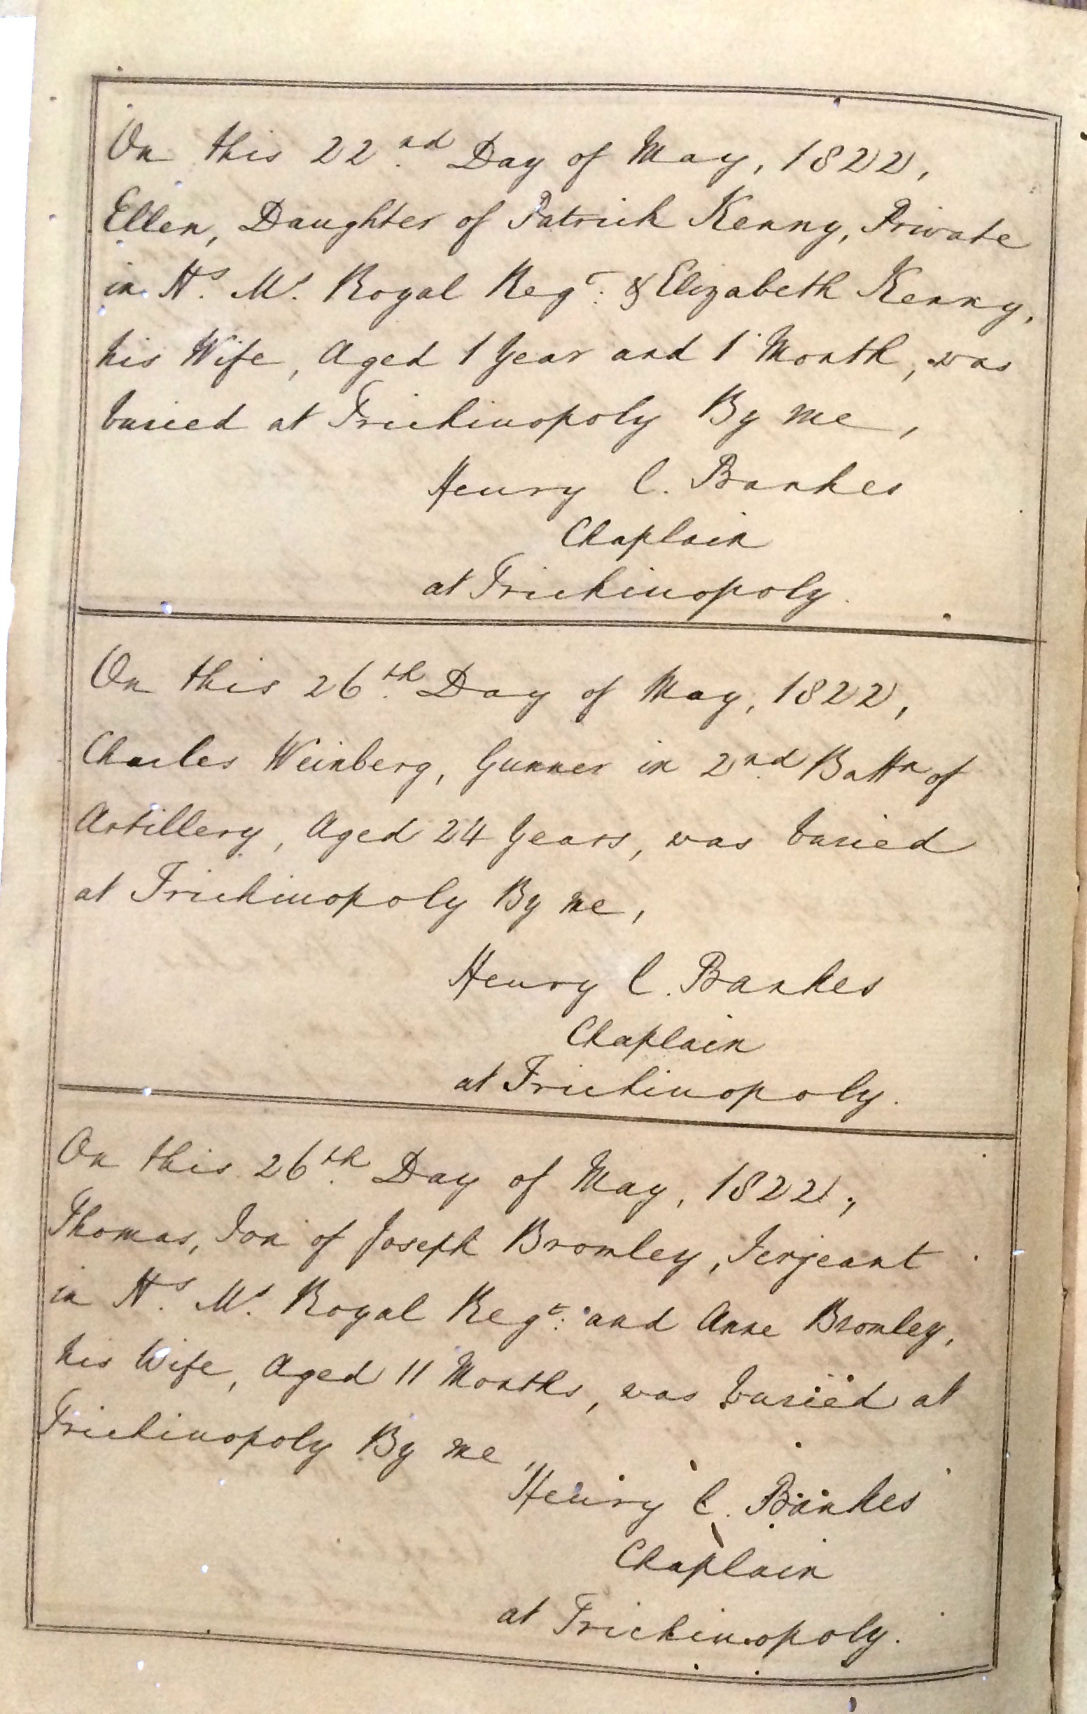 On this 22nd Day of May, 1822,
Ellen, Daughter of Patrick Kenny, Private
in Hs. Ms. Royal Regt. & Elizabeth Kenny,
his Wife, Aged 1 Year and 1 Month, was
buried at Trichinopoly By me,
Henry C. Bankes
Chaplain
at Trichinopoly.
On this 26th Day of May, 1822,
Charles Weinberg, Gunner in 2nd Battn of
Artillery, Aged 24 Years, was buried
at Trichinopoly By me,
Henry C. Bankes
Chaplain
at Trichinopoly.
On this 26th Day of May, 1822,
Thomas, Son of Joseph Bromley, Serjeant
in Hs. Ms. Royal Regt. and Anne Bromley,
his Wife, Aged 11 Months, was buried at
Trichinopoly By me,
Henry C. Bankes
Chaplain
at Trichinopoly.